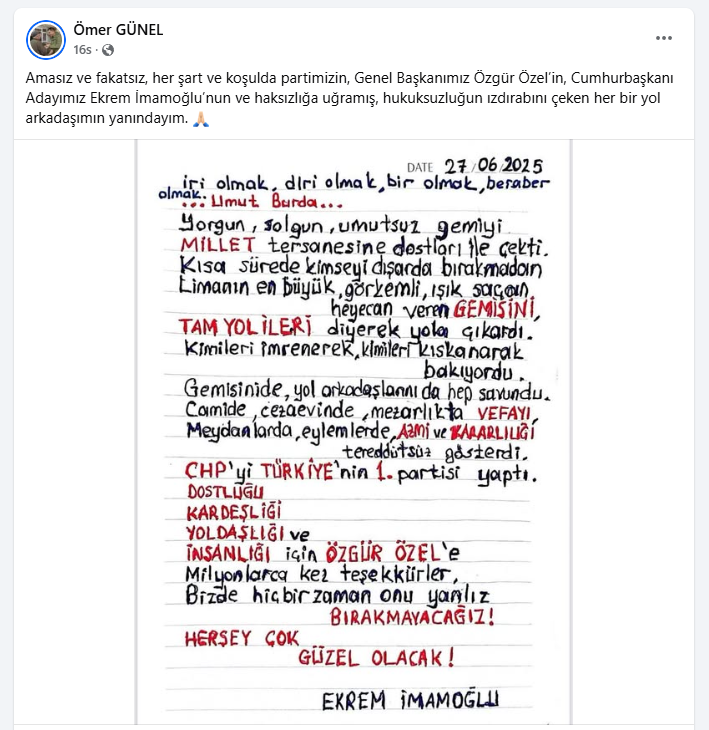 Ömer GÜNEL
16s ·
Amasız ve fakatsız, her şart ve koşulda partimizin, Genel Başkanımız Özgür Özel’in, Cumhurbaşkanı
Adayımız Ekrem İmamoğlu’nun ve haksızlığa uğramış, hukuksuzluğun ızdırabını çeken her bir yol
arkadaşımın yanındayım. 🙏🏻
DATE 27/06/2025
iri olmak, diri olmak, bir olmak, beraber
olmak.
...Umut Burda...
Yorgun, solgun, umutsuz gemiyi
MİLLET tersanesine dostları ile çekti.
Kısa sürede kimseyi dışarda bırakmadan
Limanın en büyük, görkemli, ışık saçan,
heyecan veren GEMİSİNİ,
TAM YOL İLERİ diyerek yola çıkardı.
Kimileri imrenerek, kimileri kıskanarak
bakıyordu.
Gemisinide, yol arkadaşlarınıda hep savundu.
Camide, cezaevinde, mezarlıkta VEFAYI,
Meydanlarda, eylemlerde, AZMİ ve KARARLILIĞI
tereddütsüz gösterdi.
CHP'yi TÜRKİYE'nin 1. partisi yaptı.
DOSTLUĞU
KARDEŞLİĞİ
YOLDAŞLIĞI ve
İNSANLIĞI için ÖZGÜR ÖZEL'e
Milyonlarca kez teşekkürler,
Bizde hiçbir zaman onu yanlız
BIRAKMAYACAĞIZ!
HERŞEY ÇOK
GÜZEL OLACAK!
EKREM İMAMOĞLU